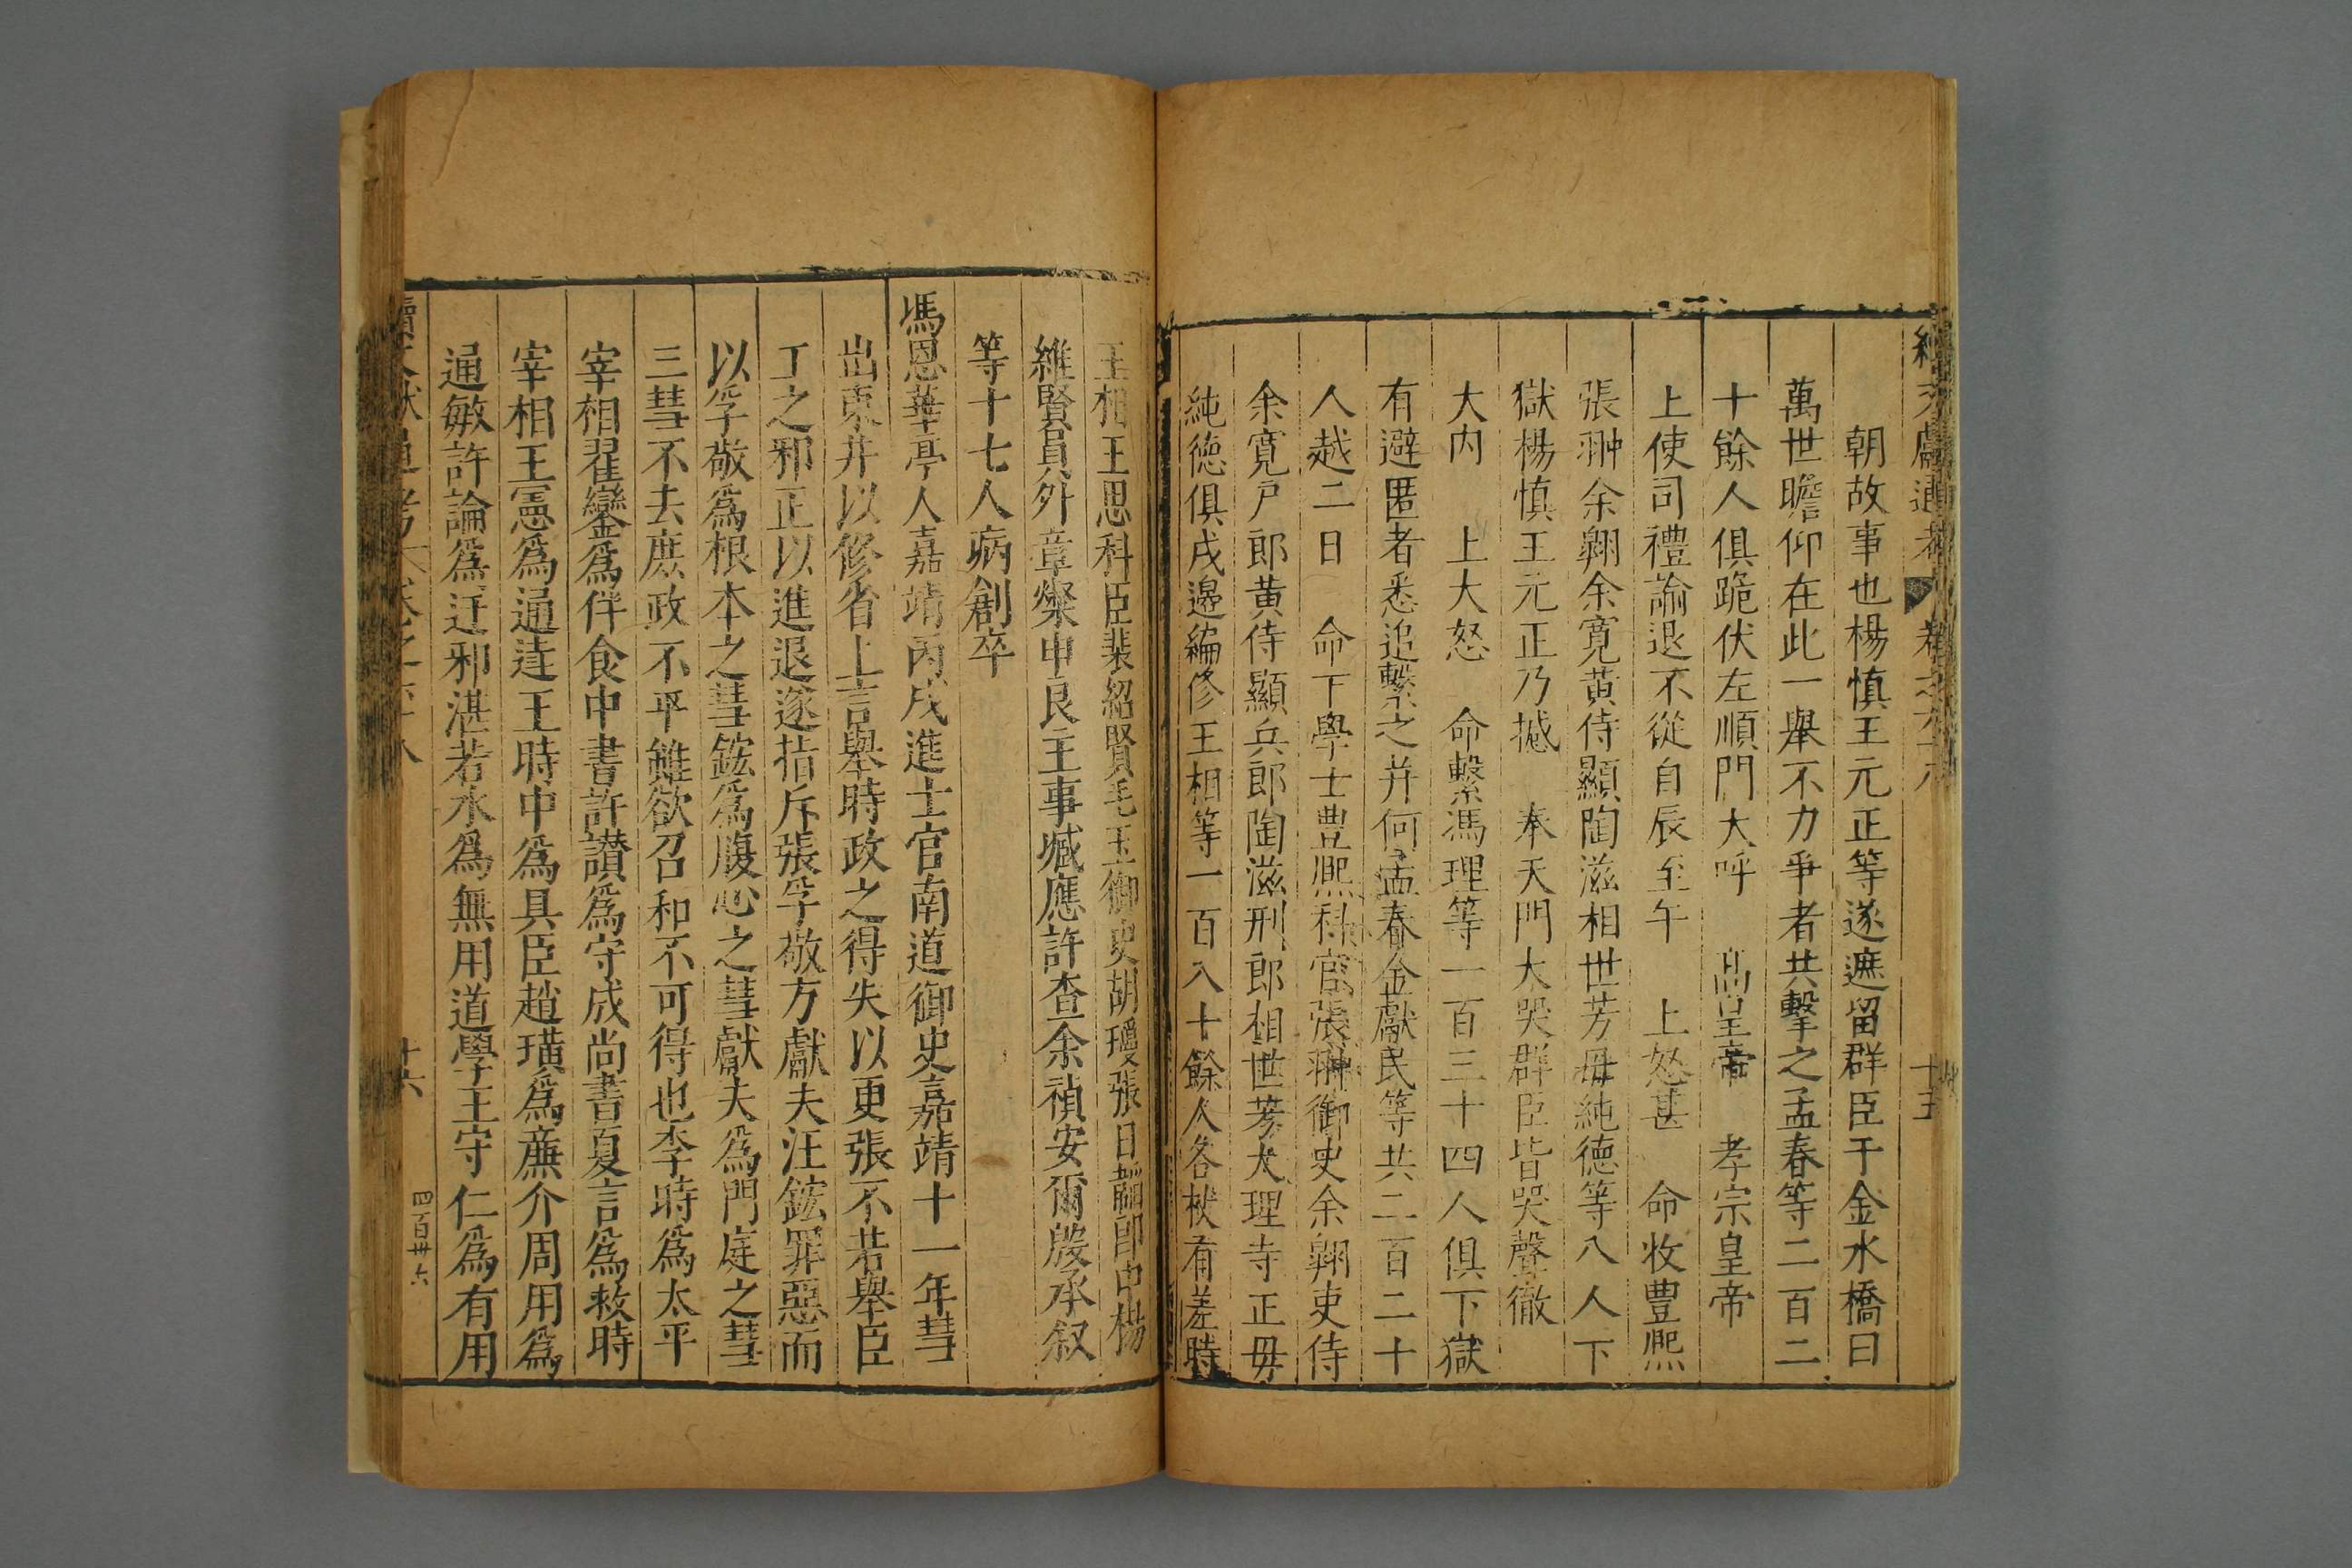 續文獻通考 卷之六十八 十五
朝故事也楊慎王元正等遂遮留群臣于金水橋曰
萬世瞻仰在此一舉不力爭者共擊之孟春等二百二
十餘人俱跪伏左順門大呼 高皇帝 孝宗皇帝
上使司禮諭退不從自辰至午 上怒甚 命收豊熈
張翀余翱余寛黃侍顯陶滋相世芳毋純德等八人下
獄楊慎王元正乃撼 奉天門大哭群臣皆哭聲徹
大内 上大怒 命繫馮理等一百三十四人俱下獄
有避匿者悉追繫之并何孟春金獻民等共二百二十
人越二日 命下學士豊熈科官張翀御史余翱吏侍
余寛戸郎黄侍顯兵郎陶滋刑郎相世芳大理寺正毋
純德俱戍邊編修王相等一百八十餘人各杖有差時
王相王思科臣裴紹賢毛玉御史胡瓊張日韜郎中楊
維賢員外章燦申良主事臧應許查余禎安爾殷承叙
等十七人病創卒
馮恩華亭人嘉靖丙戌進士官南道御史嘉靖十一年彗
出東井以修省上言舉時政之得失以更張不若舉臣
工之邪正以進退遂指斥張孚敬方獻夫汪鋐罪惡而
以孚敬爲根本之彗鋐爲腹心之彗獻夫爲門庭之彗
三彗不去庶政不平雖欲召和不可得也李時爲太平
宰相翟鑾爲伴食中書許讃爲守成尚書夏言爲救時
宰相王憲爲通達王時中爲具臣趙璜爲亷介周用爲
通敏許論爲迂邪湛若水爲無用道學王守仁爲有用
續文獻通考 卷之六十八 十六 四百卅六